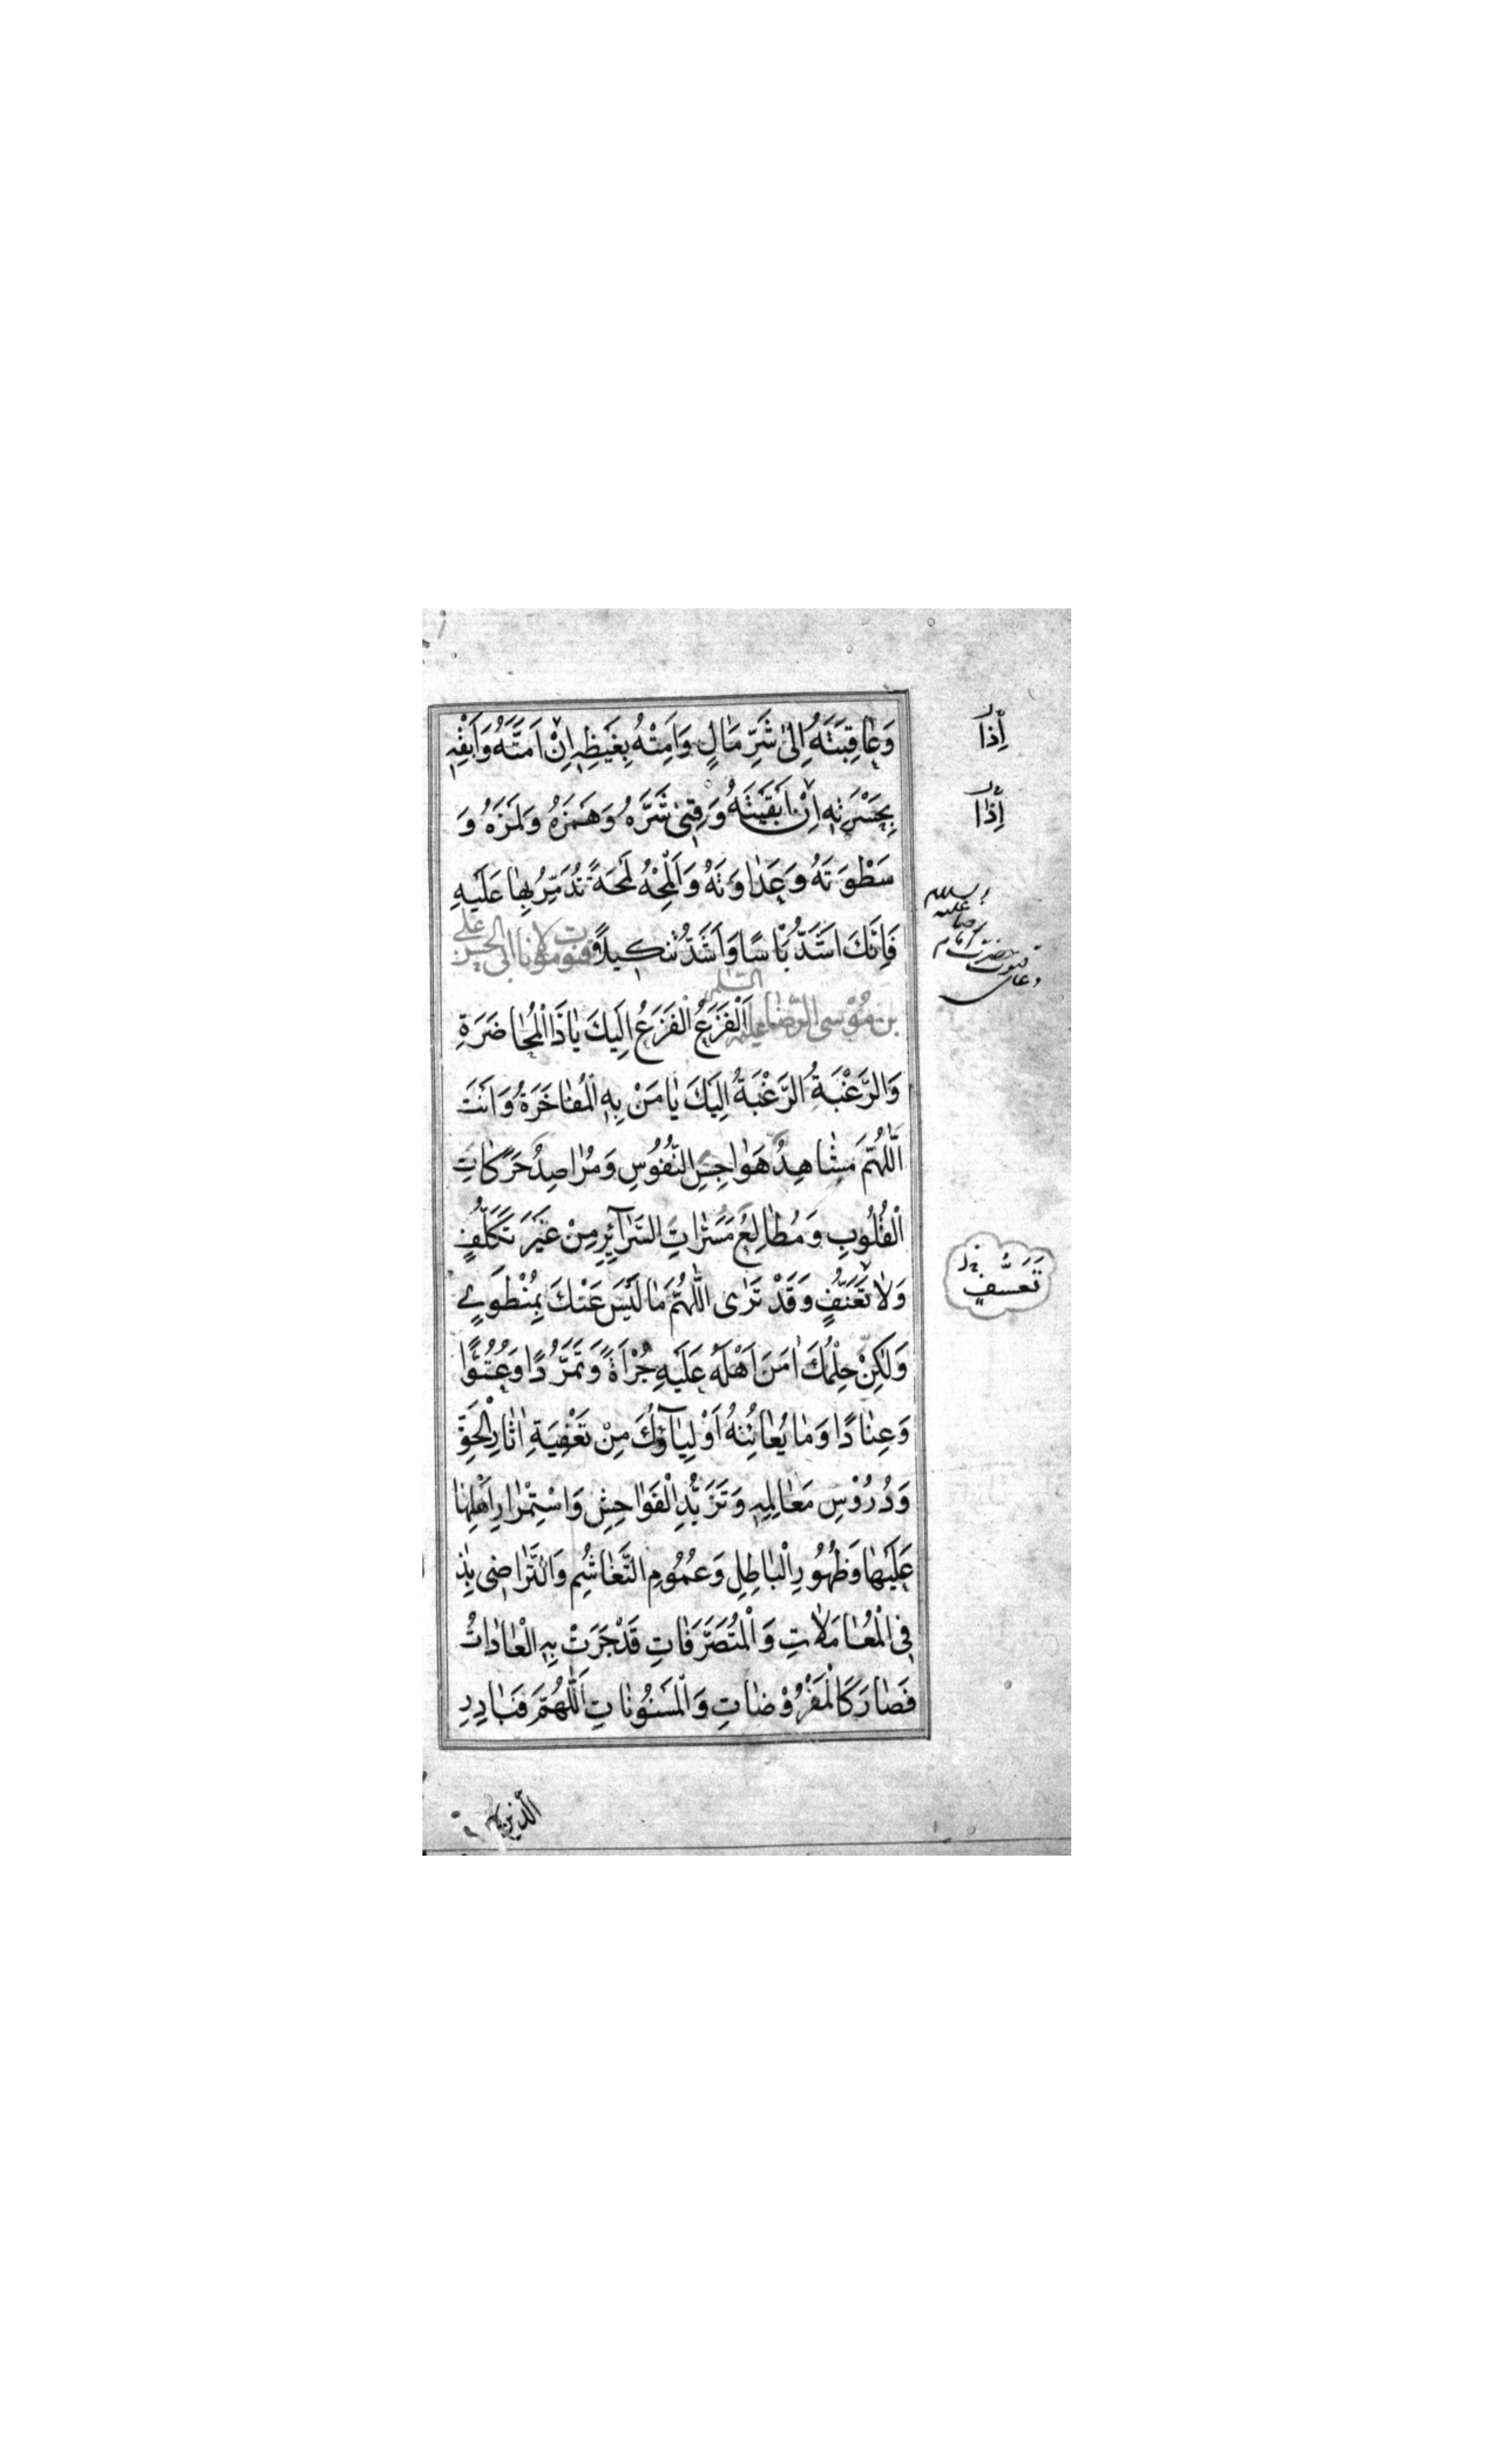 وَعَاقِبَتَهُ إِلىٰ شَرِّ مَاٰلٍ وَاَمِتْهُ بِغَيْظِهِ اِنْ اَمَتَّهُ وَاَبْقِهِ
بِحَسْرَتِهِ اِنْ اَبْقَيْتَهُ وَقِنِى شَرَّهُ وَهَمْزَهُ وَلَمْزَهُ وَ
سَطْوَتَهُ وَعَدَاوَتَهُ وَالْمِحْهُ لَمْحَةً تُدَمِّرُ بِهَا عَلَيْهِ
فَاِنَّكَ اَشَدُّ بَاْسًا وَاَشَدُّ تَنْكِيلًا قنوت مولانا ابى الحسن على
بن مُوْسى الرّضا عليه السّلم اَلْفَزَعُ الْفَزَعُ اِلَيْكَ يَا ذَا الْمُحَاضَرَةِ
وَالرَّغْبَةُ الرَّغْبَةُ اِلَيْكَ يَا مَنْ بِهِ الْمُفَاخَرَةُ وَاَنْتَ
اَللّٰهُمَّ مَشَاهِدُ هَوَاجِسِ النُّفُوْسِ وَمُرَاصِدُ حَرَكَاتِ
الْقُلُوبِ وَمُطَالِعُ مَسَرَّاتِ السَّرَآئِرِ مِنْ غَيْرِ تَكَلُّفٍ
وَلَا تَعَنُّفٍ وَقَدْ تَرٰى اللّٰهُمَّ مَا لَيْسَ عَنْكَ بِمُنْطَوِي
وَلٰكِنْ حِلْمُكَ اٰمَنَ اَهْلَهُ عَلَيْهِ جُرْاَةً وَتَمَرُّدًا وَعُتُوًّا
وَعِنَادًا وَمَا يُعَانِيْهُ اَوْلِيَاؤُكَ مِنْ تَعْفِيَةِ اٰثَارِ الْحَقِّ
وَدُرُوْسِ مَعَالِمِهِ وَتَزَيُّدِ الْفَوَاحِشِ وَاسْتِمْرَارِ اَهْلِهَا
عَلَيْهَا وَظُهُورِ الْبَاطِلِ وَعُمُوْمِ التَّغَاشُمِ وَالتَّرَاضِى بِذ
فِى الْمُعَامَلَاتِ وَالْمُتَصَرَّفَاتِ قَدْ جَرَتْ بِهِ الْعَادَاتُ
فَصَارَ كَالْمَفْرُوْضَاتِ وَالْمَسْنُونَاتِ اَللّٰهُمَّ فَبَادِرِ
اِذَا
اِذَا
دعاى قنوت حضرت امام رضا عليه
تَعَسُّفٍ
الّذين